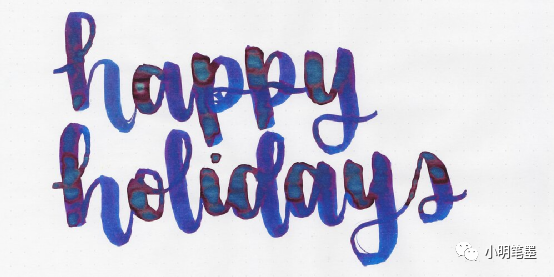 happy
holidays
小明笔墨